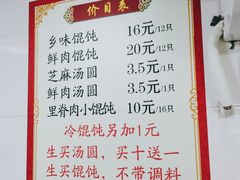 价目表
乡味馄饨 16元/12只
鲜肉馄饨 20元/12只
芝麻汤圆 3.5元/1只
鲜肉汤圆 3.5元/1只
里脊肉小馄饨 10元/16只
冷馄饨另加1元
生买汤圆，买十送一
生买馄饨，不带调料